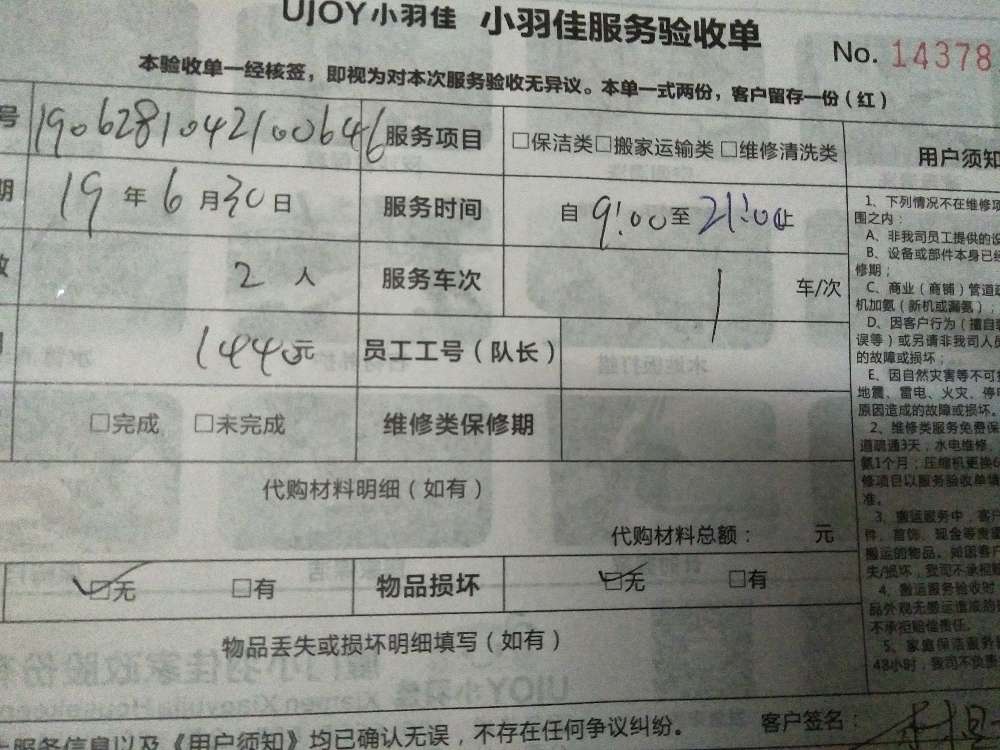 UJOY小羽佳 小羽佳服务验收单
No. 14378
本验收单一经核签，即视为对本次服务验收无异议。本单一式两份，客户留存一份（红）
号 1906281042100646 服务项目 □保洁类□搬家运输类 □维修清洗类
期 19年6月30日 服务时间 自 9:00至21:00止
2人 服务车次 1 车/次
144元 员工工号（队长）
□完成 □未完成 维修类保修期
代购材料明细（如有）
代购材料总额： 元
☑无 □有 物品损坏 ☑无 □有
物品丢失或损坏明细填写（如有）
服务信息以及《用户须知》均已确认无误，不存在任何争议纠纷。 客户签名：
用户须知
1、下列情况不在维修项
围之内：
A、非我司员工提供的设
B、设备或部件本身已经
修期；
C、商业（商铺）管道疏
机加氨（新机或漏氨）；
D、因客户行为（擅自
误等）或另请非我司人员
的故障或损坏；
E、因自然灾害等不可抗
地震、雷电、火灾、停电
原因造成的故障或损坏。
2、维修类服务免费保
道疏通3天，水电维修
氨1个月；压缩机更换6
修项目以服务验收单填
准。
3、搬运服务中，客户
件、首饰、现金等贵重
搬运的物品，如因客户
失/损坏，我司不承担赔
4、搬运服务验收时
品外观无搬运造成的
不承担赔偿责任。
5、家庭保洁服务
48小时，我司不负责